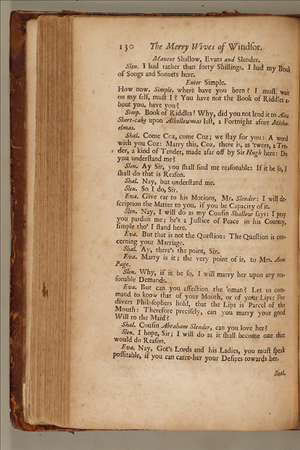 130 The Merry Wives of Windsor.
Manent Shallow, Evans and Slender.
Slen. I had rather than forty Shillings, I had my Book
of Songs and Sonnets here.
Enter Simple.
How now, Simple, where have you been? I must wait
on my self, must I? You have not the Book of Riddles a-
bout you, have you?
Simp. Book of Riddles! Why, did you not lend it to Alice
Short-cake upon Alhallowmas last, a Fortnight afore Micha-
elmas.
Shal. Come Coz, come Coz; we stay for you: A word
with you Coz: Marry this, Coz, there is, as 'twere, a Ten-
der, a kind of Tender, made afar off by Sir Hugh here: Do
you understand me?
Slen. Ay Sir, you shall find me reasonable: If it be so, I
shall do that is Reason.
Shal. Nay, but understand me.
Slen. So I do, Sir.
Eva. Give ear to his Motions, Mr. Slender: I will de-
scription the Matter to you, if you be Capacity of it.
Slen. Nay, I will do as my Cousin Shallow says: I pray
you pardon me; he's a Justice of Peace in his Country,
simple tho' I stand here.
Eva. But that is not the Question: The Question is con-
cerning your Marriage.
Shal. Ay, there's the point, Sir.
Eva. Marry is it; the very point of it, to Mrs. Ann
Page.
Slen. Why, if it be so, I will marry her upon any rea-
sonable Demands.
Eva. But can you affection the 'oman? Let us com-
mand to know that of your Mouth, or of your Lips: For
divers Philosophers hold, that the Lips is Parcel of the
Mouth: Therefore precisely, can you marry your good
Will to the Maid?
Shal. Cousin Abraham Slender, can you love her?
Slen. I hope, Sir; I will do as it shall become one that
would do Reason.
Eva. Nay, Got's Lords and his Ladies, you must speak
possitable, if you can carre-her your Desires towards her.
Shal.